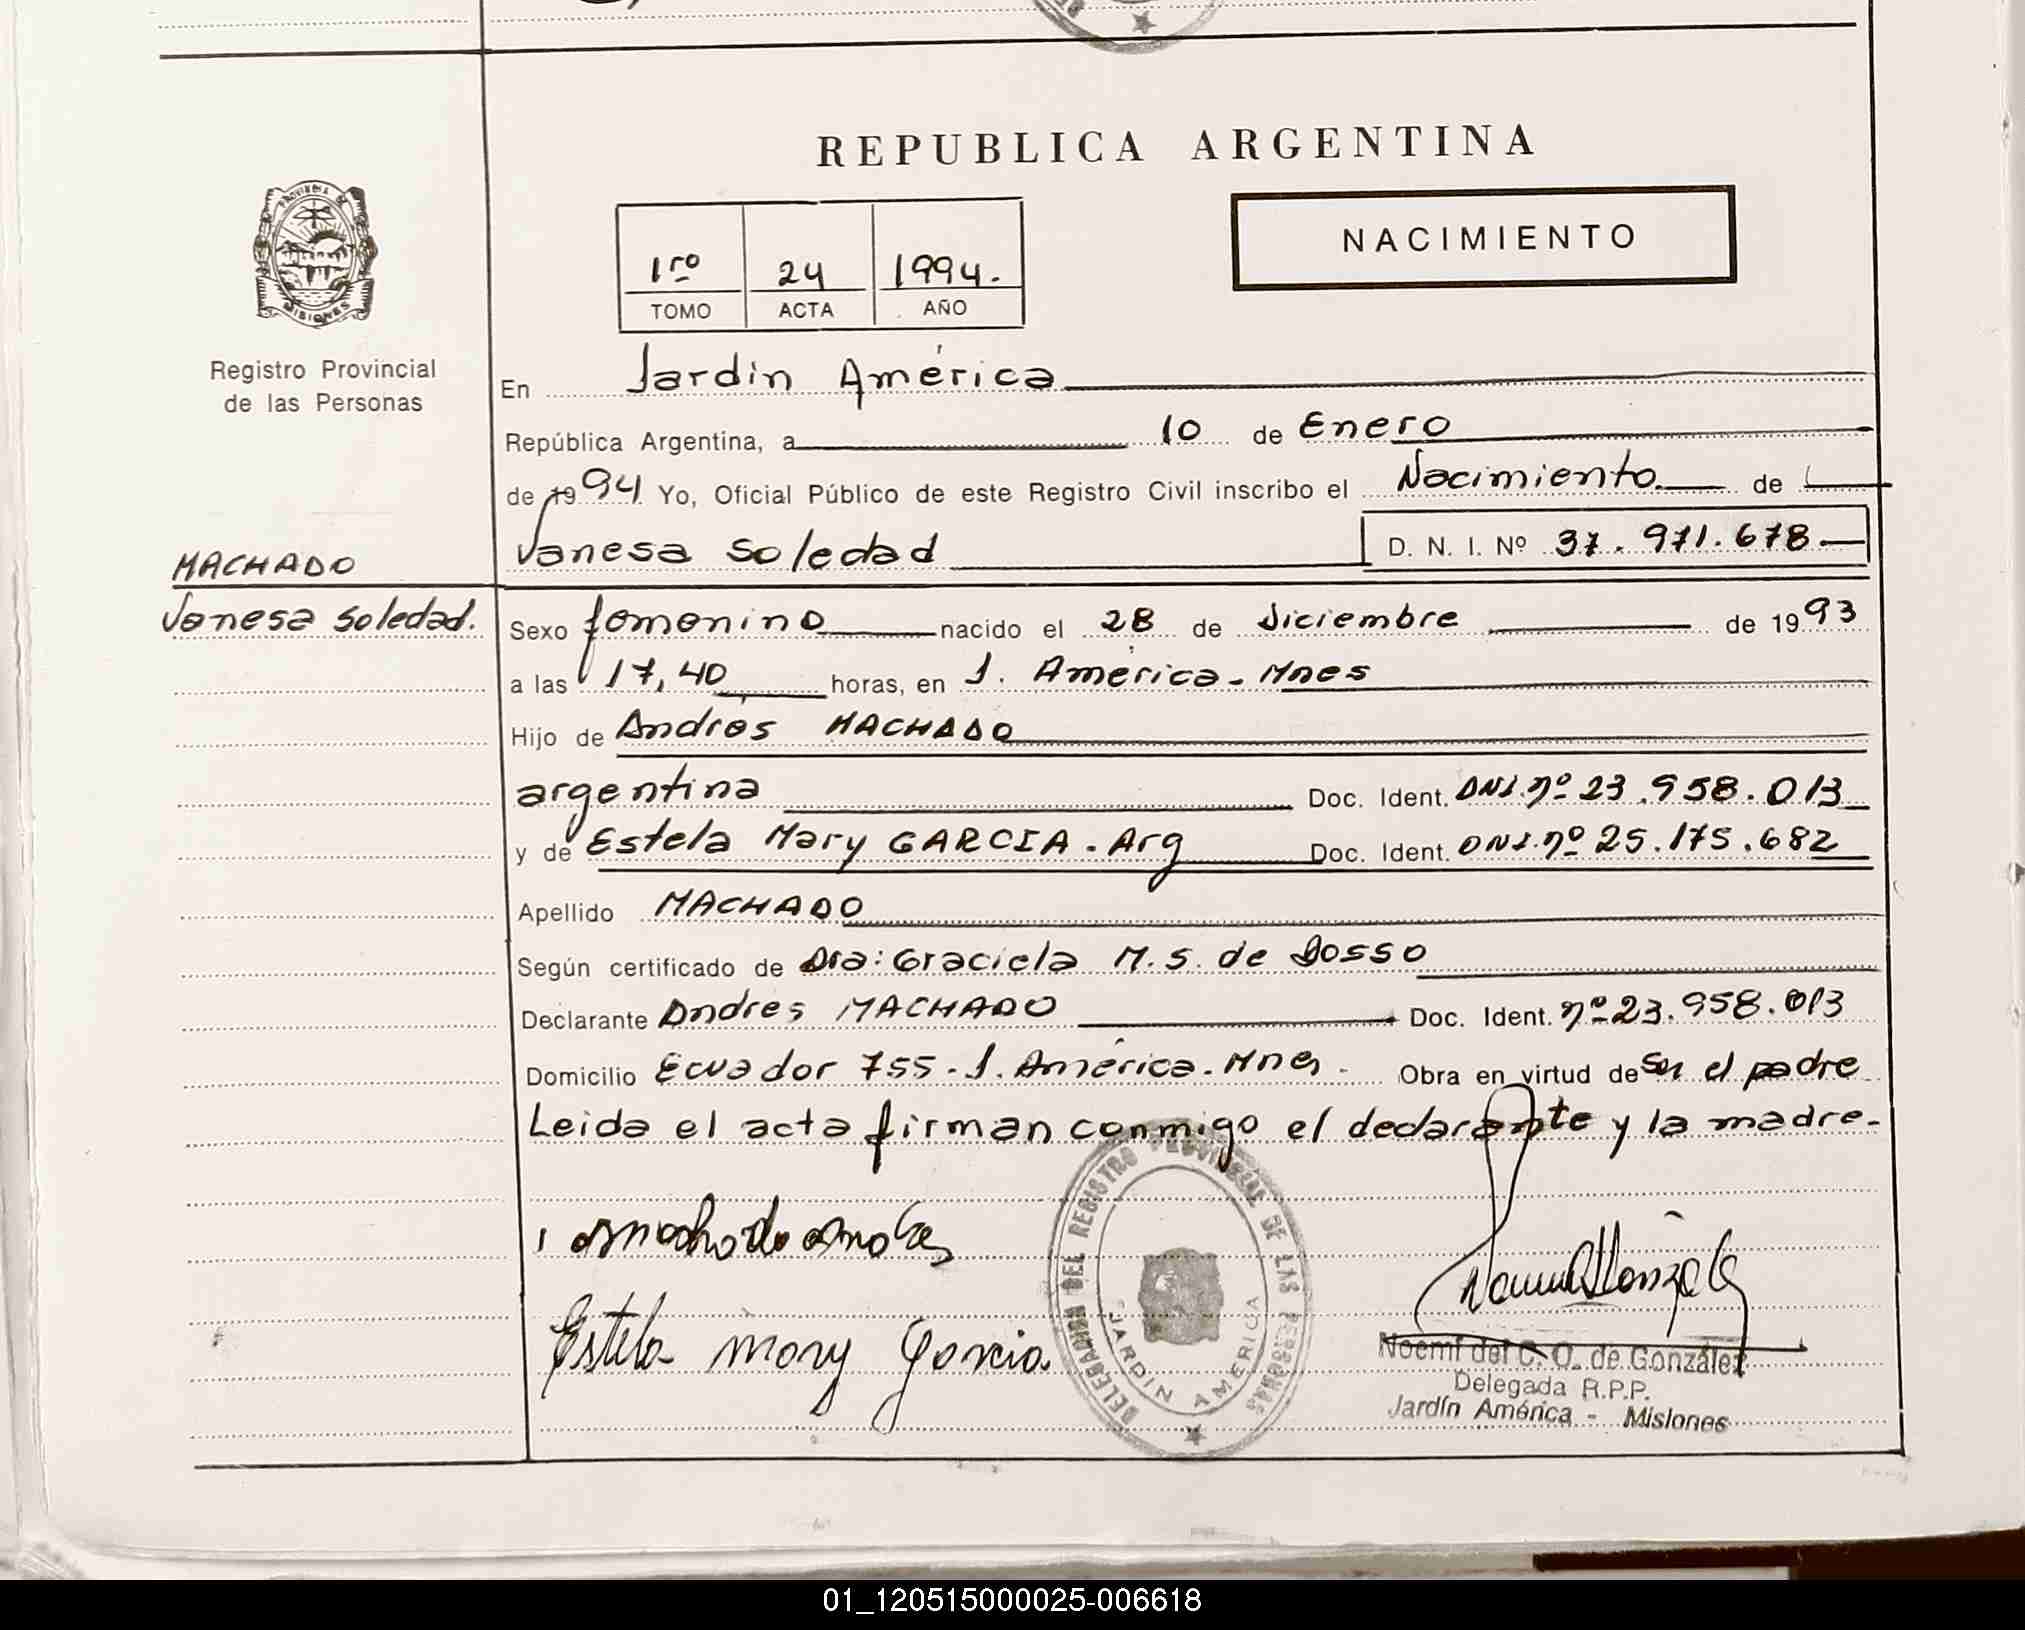 REPUBLICA ARGENTINA
NACIMIENTO
1ro 24 1994.
TOMO ACTA AÑO
PROVINCIA DE
MISIONES
Registro Provincial
de las Personas
En Jardín América
República Argentina, a 10 de Enero
de 1994 Yo, Oficial Público de este Registro Civil inscribo el Nacimiento de
Vanesa Soledad D. N. I. Nº 37.971.678
MACHADO
Vanesa Soledad.
Sexo femenino nacido el 28 de diciembre de 1993
a las 17,40 horas, en J. América - Mnes
Hijo de Andrés MACHADO
argentina Doc. Ident. DNI. nº 23.958.013
y de Estela Mary GARCIA. Arg Doc. Ident. DNI. nº 25.175.682
Apellido MACHADO
Según certificado de Dra: Graciela M. S. de Dosso
Declarante Andrés MACHADO Doc. Ident. nº 23.958.013
Domicilio Ecuador 755 - J. América. Mnes - Obra en virtud de ser el padre
Leida el acta firman conmigo el declarante y la madre -
Estela Mary Garcia
DELEGACION DEL REGISTRO PROVINCIAL DE LAS PERSONAS
JARDIN AMERICA
Noemí del C. O. de González
Delegada R.P.P.
Jardín América - Misiones
01_120515000025-006618